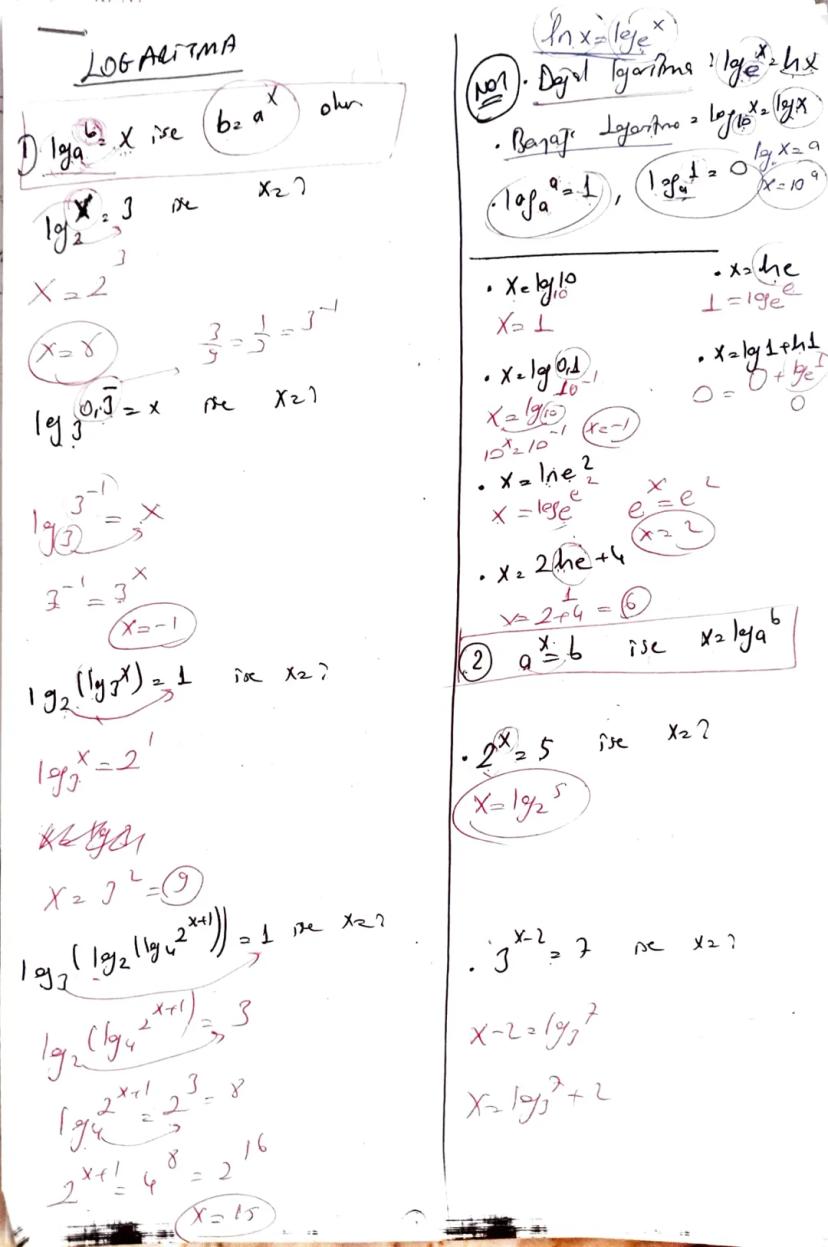 LOGARİTMA
1) log_a^b = x ise b = a^x olur
log_2^x = 3 ise x = ?
x = 2^3
x = 8
3/9 = 1/3 = 3^-1
log_3^0,3̅ = x ise x = ?
log_3^3^-1 = x
3^-1 = 3^x
x = -1
log_2(log_3^x) = 1 ise x = ?
log_3^x = 2^1
x = 3^2 = 9
log_3(log_2(log_4^2^x+1)) = 1 ise x = ?
log_2(log_4^2^x+1) = 3
log_4^2^x+1 = 2^3 = 8
2^x+1 = 4^8 = 2^16
x = 15
ln x = log_e^x
NOT • Doğal logaritma : log_e^x = ln x
• Bayağı Logaritma = log_10^x = log x
log x = a
x = 10^a
• log_a^a = 1 , log_a^1 = 0
• x = log 10
x = 1
• x = ln e
1 = log_e^e
• x = log 0,1
10^-1
x = log_10
10^x = 10^-1 x = -1
• x = log 1 + ln 1
0 = 0 + log_e^1
0
• x = ln e^2
x = log_e^e^2 e^x = e^2
x = 2
• x = 2 ln e + 4
1
x = 2 + 4 = 6
2 a^x = b ise x = log_a^b
• 2^x = 5 ise x = ?
x = log_2^5
• 3^x-2 = 7 ise x = ?
x - 2 = log_3^7
x = log_3^7 + 2